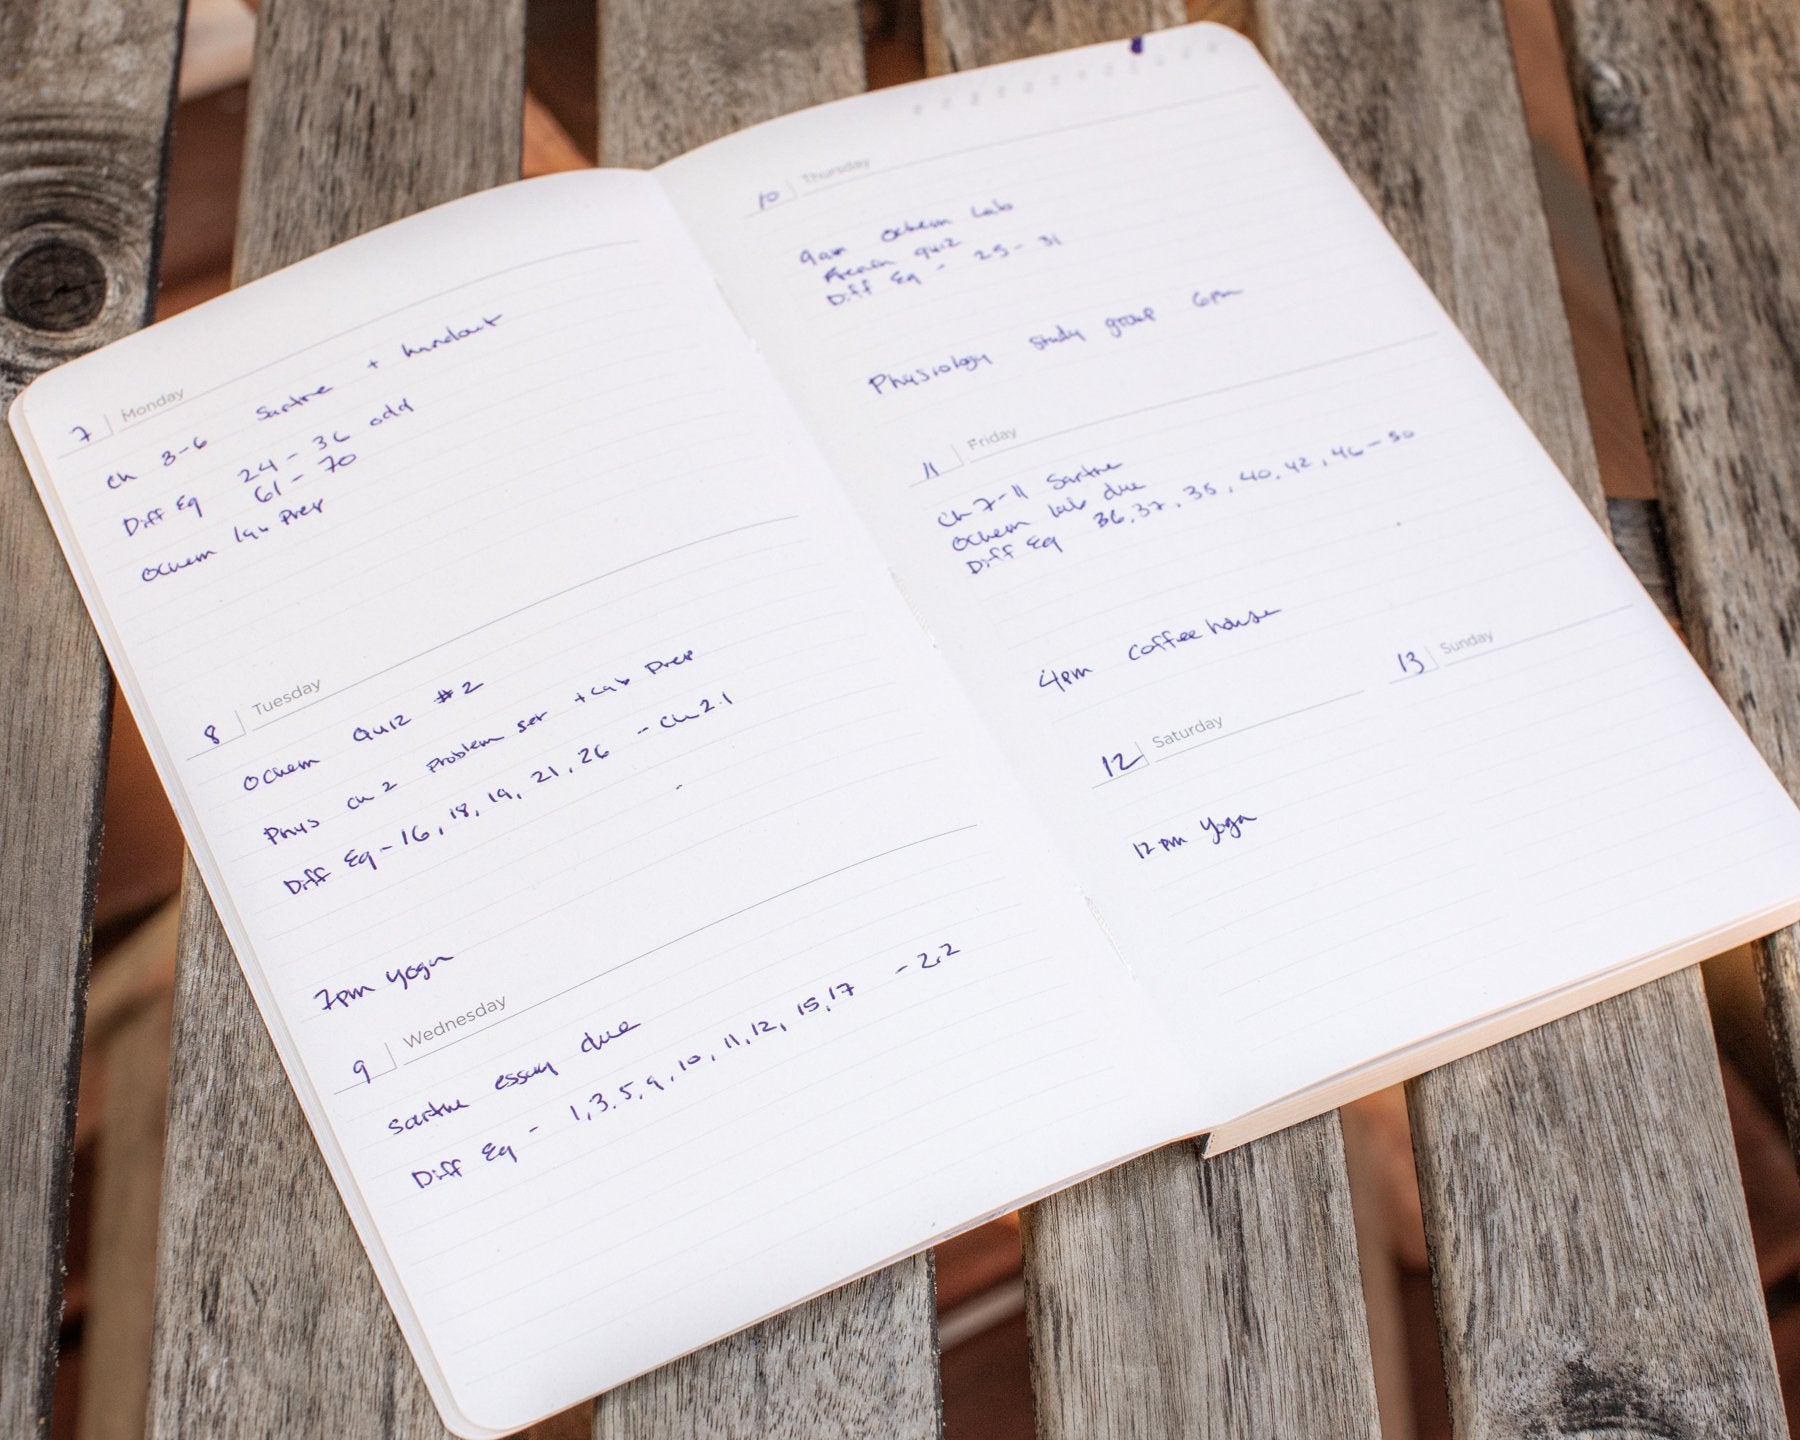 7 Monday
Ch 3-6 Sartre + handout
Diff Eq 24 - 36 odd
61 - 70
Ochem lab Prep
8 Tuesday
Ochem Quiz #2
Phys Ch 2 Problem set + Lab Prep
Diff Eq - 16, 18, 19, 21, 26 - Ch 2.1
7pm yoga
9 Wednesday
Sartre essay due
Diff Eq - 1, 3, 5, 9, 10, 11, 12, 15, 17 - 2.2
10 Thursday
9am Ochem Lab
quiz
Diff Eq - 25 - 31
Physiology study group 6pm
11 Friday
Ch 7-11 Sartre
Ochem lab due
Diff Eq 36, 37, 35, 40, 42, 46 - 50
4pm Coffee house
12 Saturday
12 pm Yoga
13 Sunday